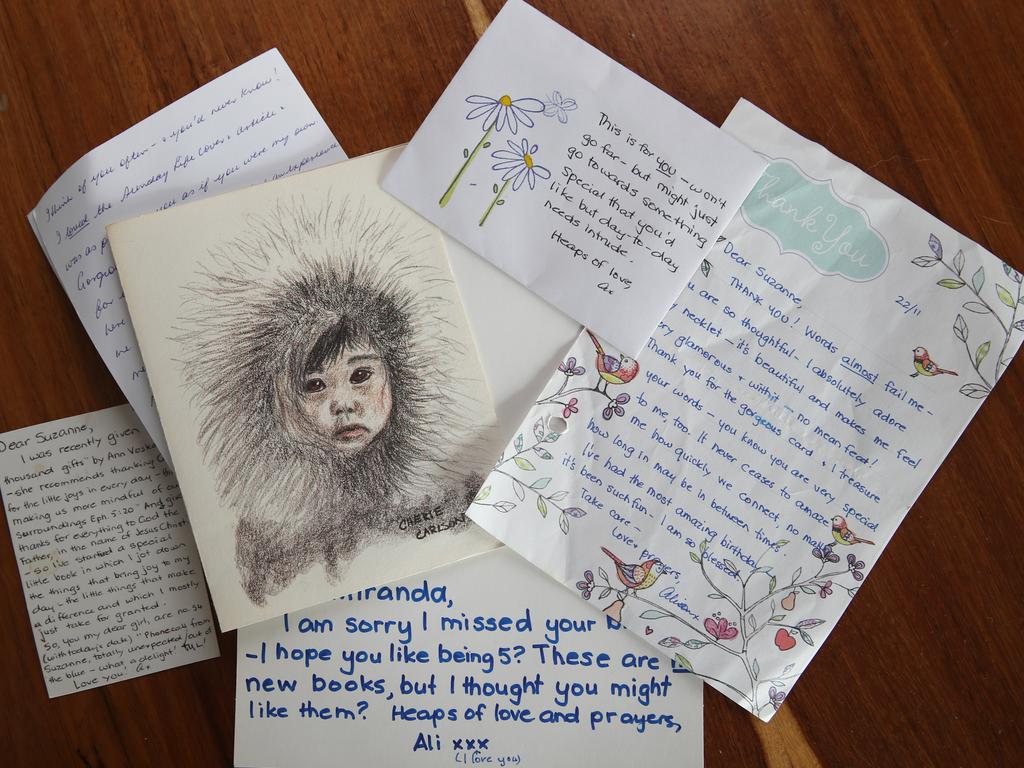 I think of you often - & you'd never know!
I loved the Sunday Life cover & article &
you as if you were my own.
was as
for
here
Dear Suzanne,
I was recently given
thousand gifts" by Ann Voska
- she recommends thanking G
for the little joys in every day -
making us more mindful of our
surroundings Eph. 5:20 "And give
thanks for everything to God the
Father, in the name of Jesus Christ"
- so I've started a special
little book in which I jot down
the things that bring joy to my
day - the little things that make
a difference and which I mostly
just take for granted.
So, you my dear girl, are no. 34
(with today's date) "Phonecall from
Suzanne, totally unexpected/out of
the blue - what a delight! TYL!
Love you! Ax
CHERIE
CARLSON
This is for you - won't
go far - but might just
go towards something
special that you'd
like but day-to-day
needs intrude.
Heaps of love,
Ax
Thank You
22/11
Dear Suzanne,
THANK YOU! Words almost fail me -
u are so thoughtful - I absolutely adore
necklet - it's beautiful and makes me feel
ry glamorous & 'with it' - no mean feat!
Thank you for the gorgeous card & I treasure
your words - you know you are very special
to me too. It never ceases to amaze
me how quickly we connect, no matter
how long in may be in between times.
I've had the most amazing birthday,
it's been such fun - I am so blessed.
Take care -
Love & prayers,
Alison x
iranda,
I am sorry I missed your b
- I hope you like being 5? These are
new books, but I thought you might
like them? Heaps of love and prayers,
Ali xxx
(I love you)